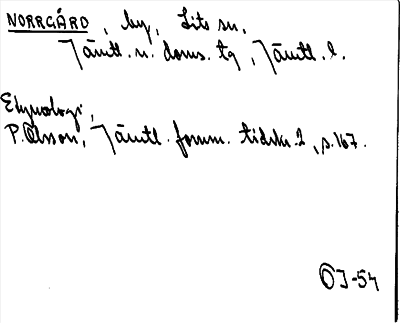 NORRGÅRD, by, Lits sn,
Jämtl. n. doms. tg, Jämtl. l.
Etymologi,
P. Olsson, Jämtl. fornm. tidskr. 2, s. 167.
OJ-54